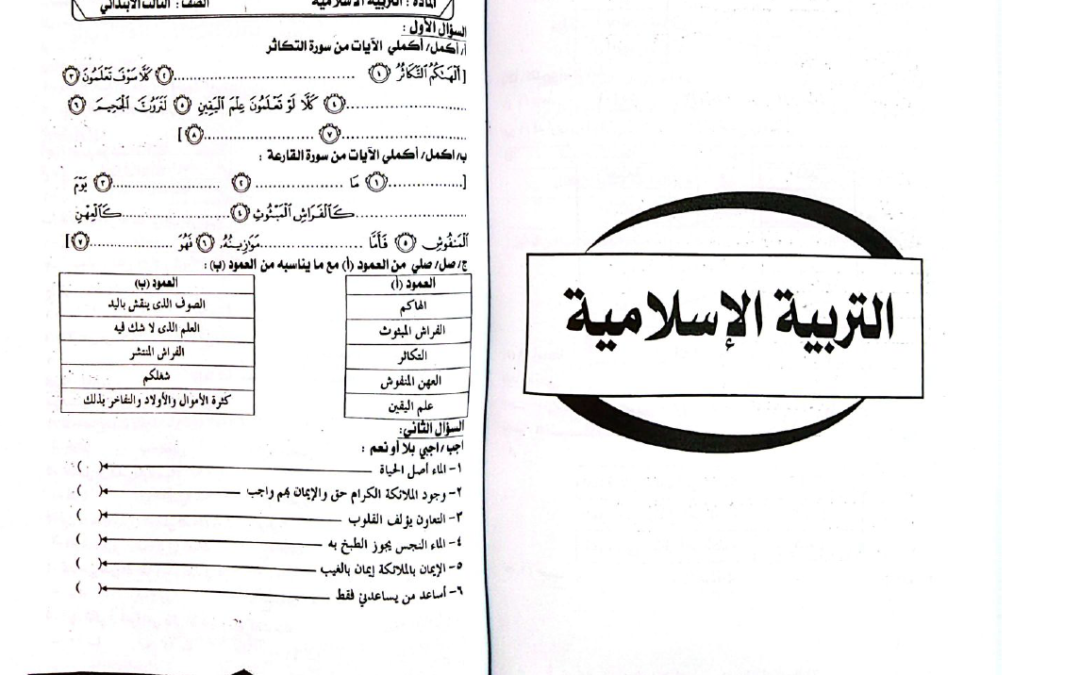 المادة : التربية الإسلامية الصف : الثالث الابتدائي
السؤال الأول :
أ/ أكمل/ أكملي الآيات من سورة التكاثر
[ أَلْهَىٰكُمُ التَّكَاثُرُ ١ ........................ ٢ كَلَّا سَوْفَ تَعْلَمُونَ ٣
........................ ٤ كَلَّا لَوْ تَعْلَمُونَ عِلْمَ الْيَقِينِ ٥ لَتَرَوُنَّ الْجَحِيمَ ٦
........................ ٧ ........................ ٨ ]
ب/ اكمل/ أكملي الآيات من سورة القارعة :
[ ................ ١ مَا ................ ٢ ................ ٣ يَوْمَ
................ كَالْفَرَاشِ الْمَبْثُوثِ ٤ ................ كَالْعِهْنِ
الْمَنْفُوشِ ٥ فَأَمَّا ................ مَوَازِينُهُ، ٦ فَهُوَ ................ ٧ ]
ج/ صل/ صلي من العمود (أ) مع ما يناسبه من العمود (ب) :
العمود (أ) العمود (ب)
الهاكم الصوف الذى ينقش باليد
الفراش المبثوث العلم الذى لا شك فيه
التكاثر الفراش المنتشر
العهن المنفوش شغلكم
علم اليقين كثرة الأموال والأولاد والتفاخر بذلك
السؤال الثاني:
اجب/ اجبي بلا أو نعم :
١- الماء أصل الحياة ( )
٢- وجود الملائكة الكرام حق والإيمان بهم واجب ( )
٣- التعاون يؤلف القلوب ( )
٤- الماء النجس يجوز الطبخ به ( )
٥- الإيمان بالملائكة إيمان بالغيب ( )
٦- أساعد من يساعدني فقط ( )
التربية الإسلامية